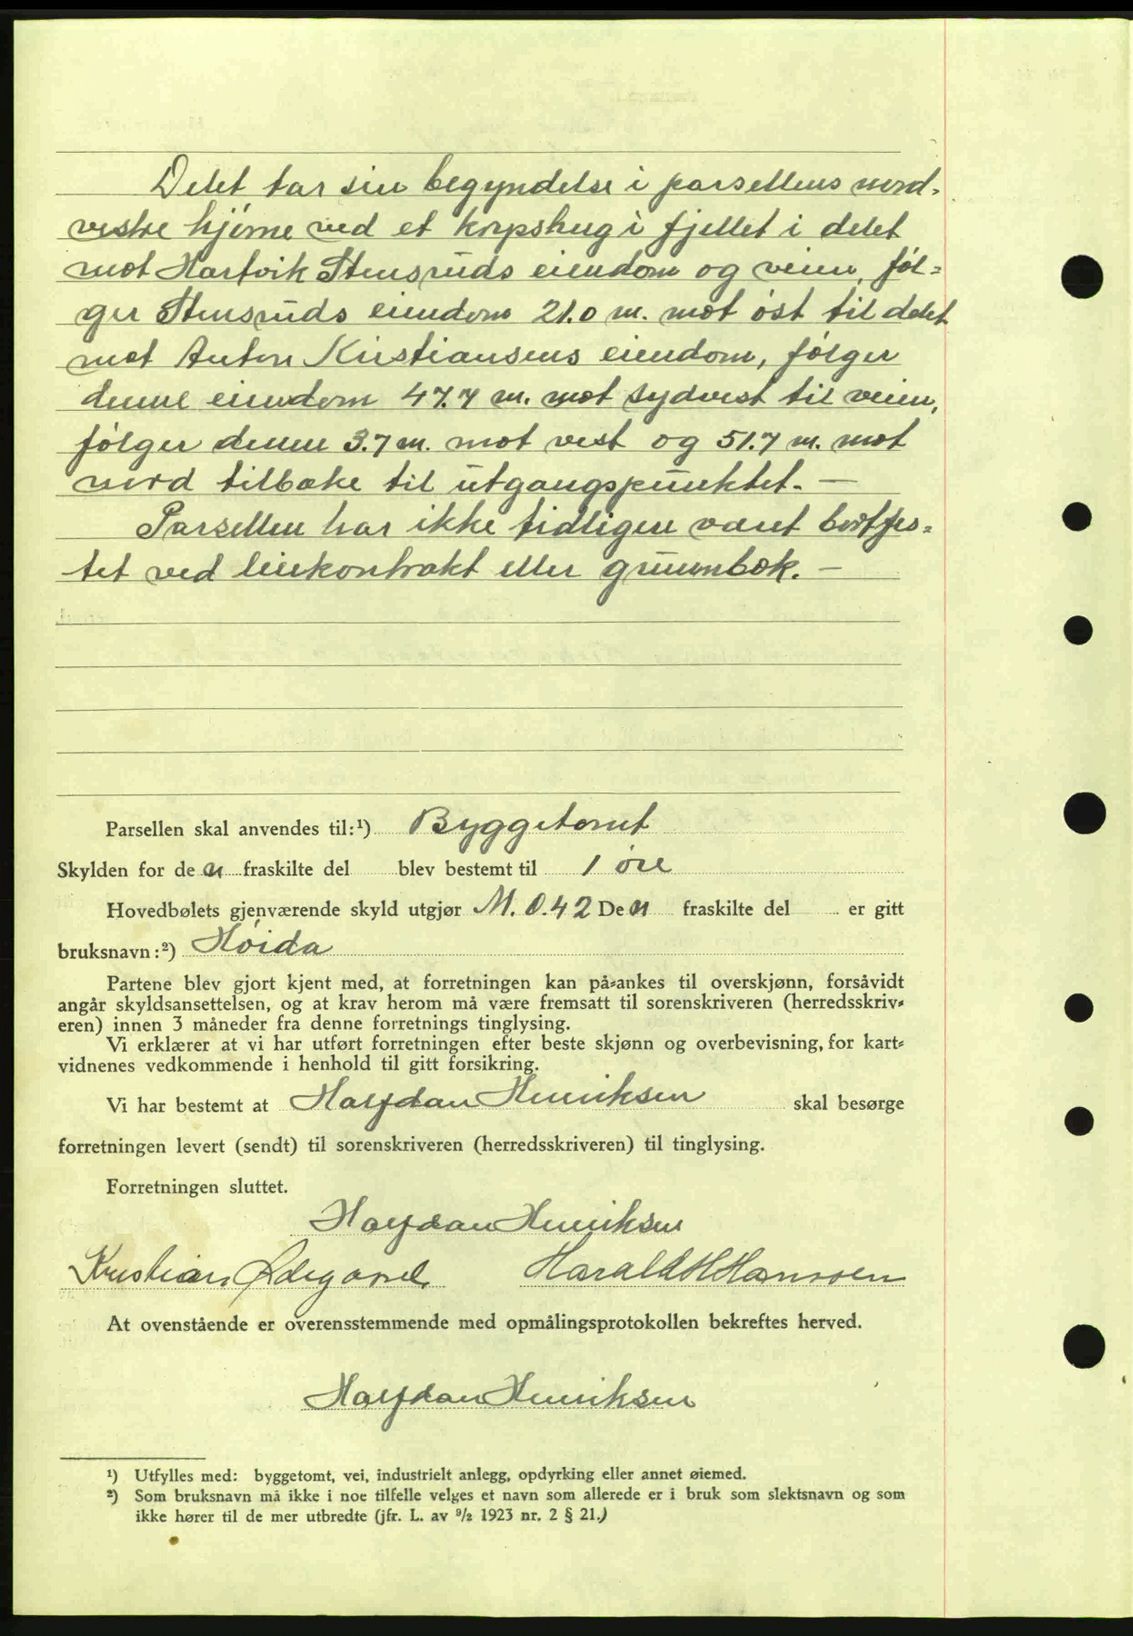 Delet tar sin begyndelse i parsellens nord-
vestre hjørne ved et krypshug i fjellet i delet
mot Hartvik Stensruds eiendom og veien, føl=
ger Stensruds eiendom 21.0 m. mot øst til delet
mot Anton Kristiansens eiendom, følger
denne eiendom 47.7 m. mot sydvest til veien,
følger denne 3.7 m. mot vest og 51.7 m. mot
nord tilbake til utgangspunktet. —
Parsellen har ikke tidligere været bortfes=
tet ved leiekontrakt eller grunnbok. —
Parsellen skal anvendes til:¹) Byggetomt
Skylden for den fraskilte del blev bestemt til 1 øre
Hovedbølets gjenværende skyld utgjør M. 0.42 Den fraskilte del er gitt
bruksnavn:²) Høida
Partene blev gjort kjent med, at forretningen kan på=ankes til overskjønn, forsåvidt
angår skyldsansettelsen, og at krav herom må være fremsatt til sorenskriveren (herredsskriv=
eren) innen 3 måneder fra denne forretnings tinglysing.
Vi erklærer at vi har utført forretningen efter beste skjønn og overbevisning, for kart=
vidnenes vedkommende i henhold til gitt forsikring.
Vi har bestemt at Halfdan Henriksen skal besørge
forretningen levert (sendt) til sorenskriveren (herredsskriveren) til tinglysing.
Forretningen sluttet.
Halfdan Henriksen
Kristian Ødegaard Harald H Hanssen
At ovenstående er overensstemmende med opmålingsprotokollen bekreftes herved.
Halfdan Henriksen
¹) Utfylles med: byggetomt, vei, industrielt anlegg, opdyrking eller annet øiemed.
²) Som bruksnavn må ikke i noe tilfelle velges et navn som allerede er i bruk som slektsnavn og som
ikke hører til de mer utbredte (jfr. L. av 9/2 1923 nr. 2 § 21.)